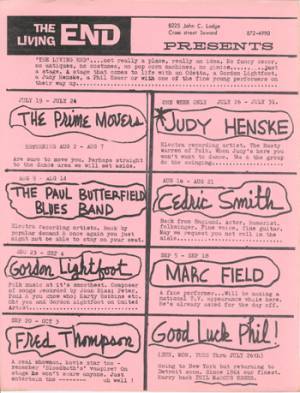 THE
LIVING END
8225 John C. Lodge
Cross street Seward
872-4990
PRESENTS
"THE LIVING END"....not really a place, really an idea. No fancy decor,
no antiques, no costumes, no pop corn machines, no
a stage. A stage that comes to life with an Odetta, a Gordon Lightfoot,
a Judy Henske, a Phil Esser or with one of the fine young performers on
their way up.
JULY 19 - JULY 24
THE PRIME MOVERS
AUG 2 - AUG 7
Are sure to move you. Perhaps straight
to the dance area we will set aside.
ONE WEEK ONLY JULY 26 - JULY 31.
*JUDY HENSKE
Electra recording artist. The Rusty
Warren of Folk. When Judy's here you
won't want to dance. We & the group
do the swinging.
AUG 9 - AUG 14
THE PAUL BUTTERFIELD
BLUES BAND
Electra recording artists. Back by
popular demand & once again you just
might not be able to stay on your seat.
AUG 16 - AUG 21
Cedric Smith
Back from England. Actor, humorist,
folksinger. Fine voice, fine guitar.
But we request you not roll in the
aisle.
AUG 23 - SEP 4
Gordon Lightfoot
Folk music at it's smoothest. Composer
of songs recorded by Joan Biaz; Peter,
Paul & you know who; Marty Robbins etc.
Oh! yes and Gordon Lightfoot on United
Artist.
SEP 5 - SEP 18
MARC FIELD
A fine performer...Will be making a
national T.V. appearance while here.
He's already asked for the day off.
SEP 20 - OCT 3
FRED Thompson
A real showman, movie star too -
remember "Bloodbath's" vampire? On
stage he won't scare anyone. Just
entertain the oh well !
Good Luck Phil!
(SUN, MON, TUES Thru JULY 26th)
Going to New York but returning to
Detroit soon. Since 1964 our finest.
Hurry back PHIL MARCUS ESSER.